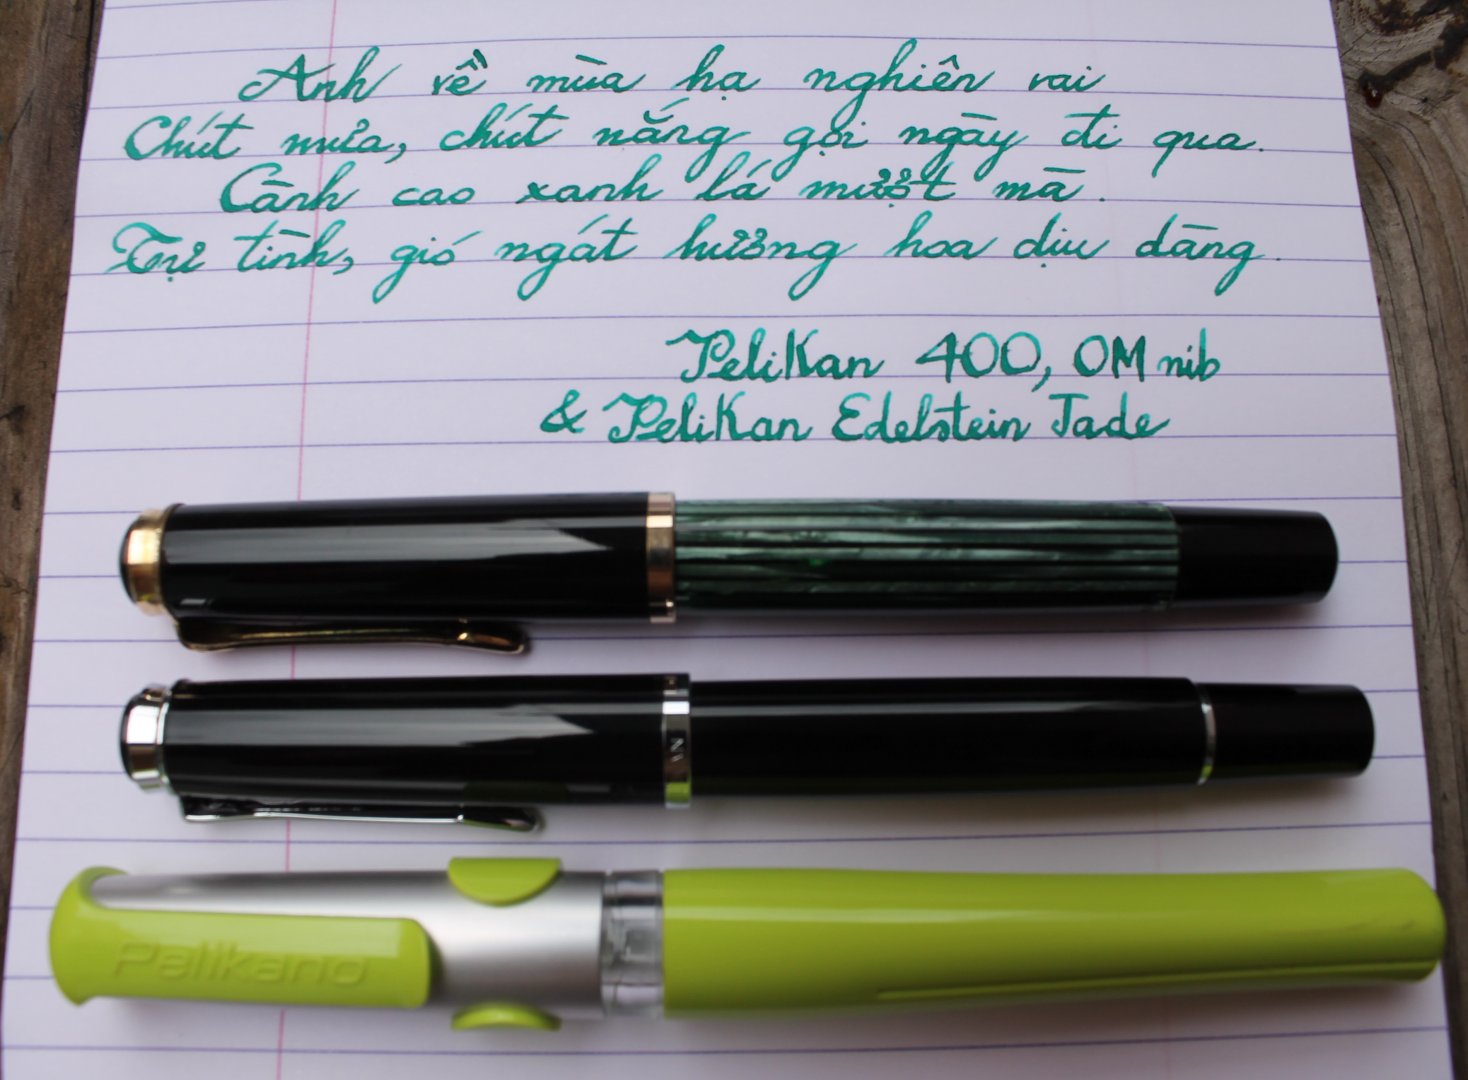 Anh về mùa hạ nghiên vai
Chút mưa, chút nắng gọi ngày đi qua.
Cành cao xanh lá mượt mà.
Tự tình, gió ngát hương hoa dịu dàng.
Pelikan 400, OM nib
& Pelikan Edelstein Jade
Pelikano